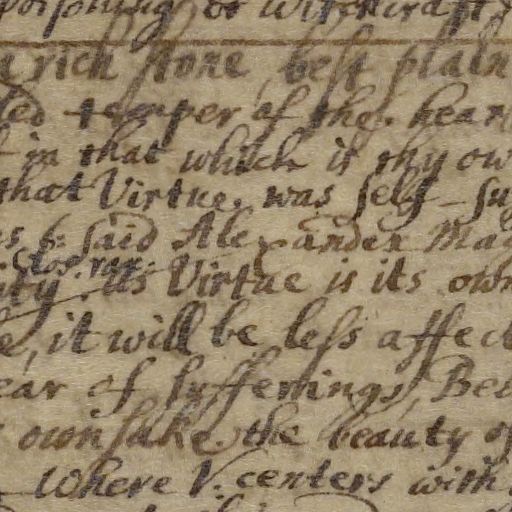 or witchcraft
rich stone, best plain
temper of the hear
in that which is thy ow
that Virtue was self-su
said Alexander Mag
its Virtue is its own
it will be less affect
ear of sufferings, Bec
own sake, the beauty of
Where V. centers with